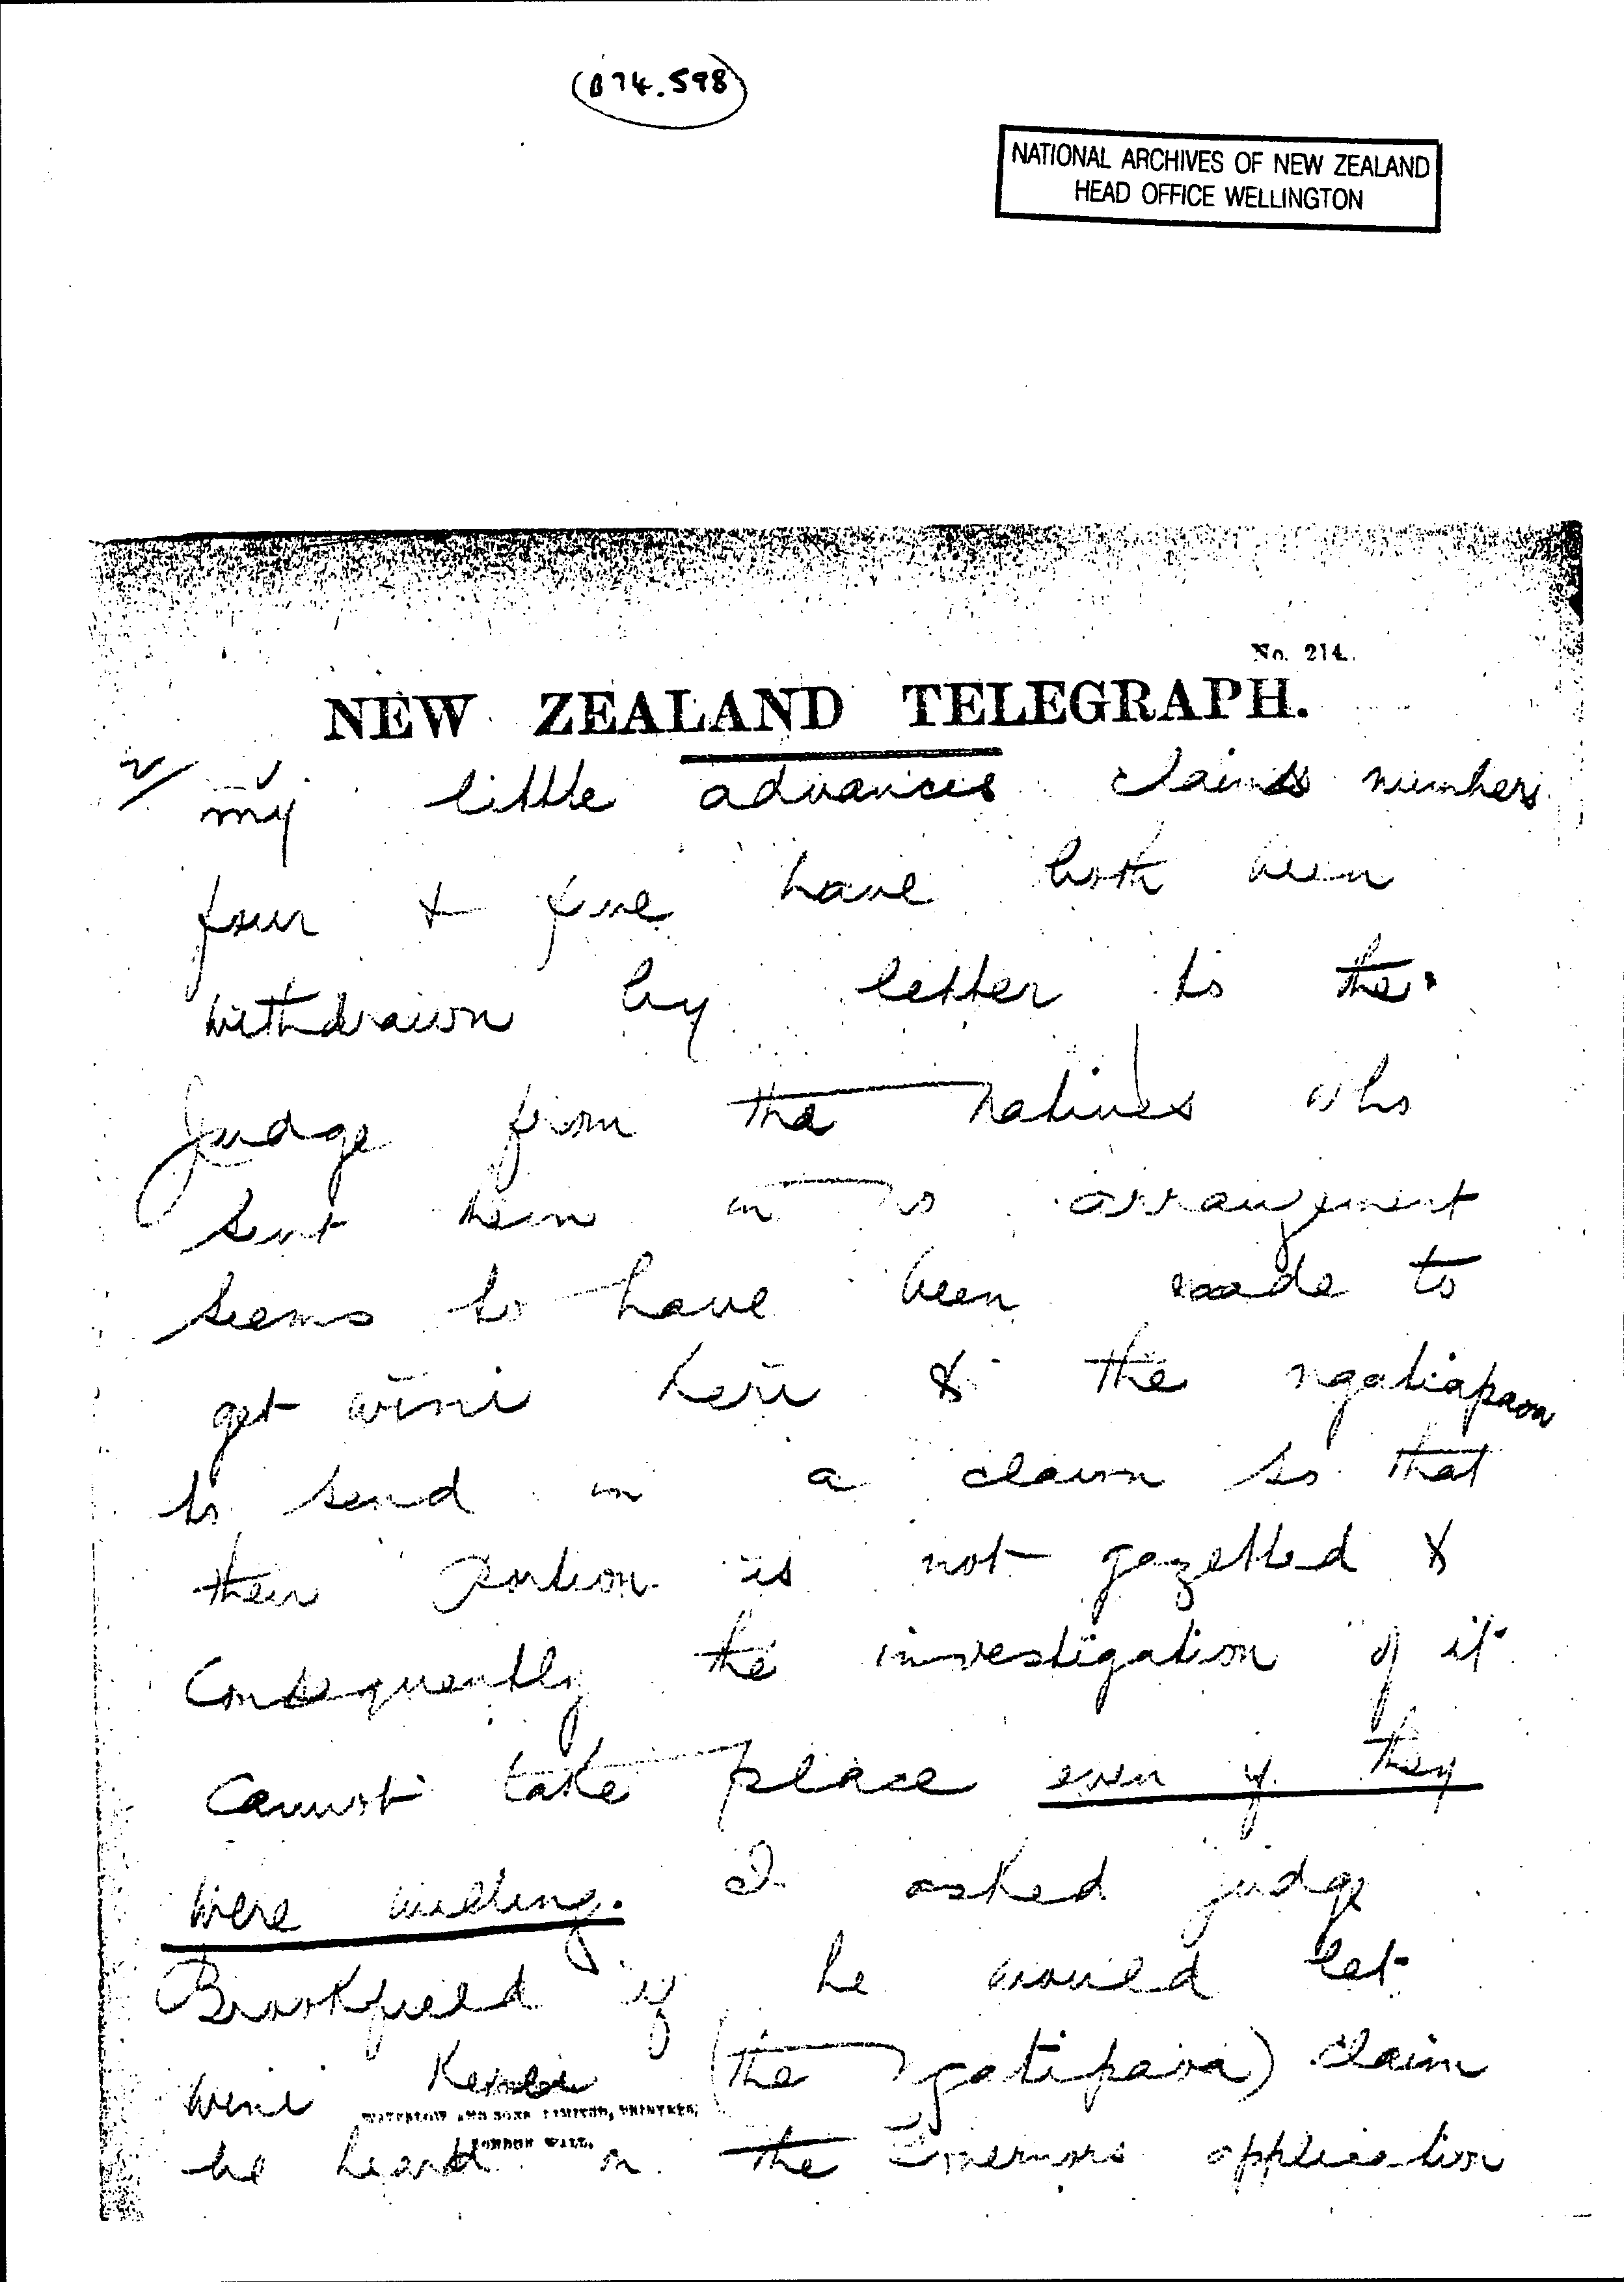 (B74.598)
NATIONAL ARCHIVES OF NEW ZEALAND
HEAD OFFICE WELLINGTON
No. 214.
NEW ZEALAND TELEGRAPH.
2/ my little advances claims numbers
four & five have both been
withdrawn by letter to the
Judge from the natives who
sent them in no arrangement
seems to have been made to
get wini keri & the ngatiapaoa
to send in a claim so that
their portion is not gazetted &
Consequently the investigation of it
Cannot take place even if they
were willing. I asked judge
Brookfield if he would let
wini (the ngatipaoa) claim
WATERLOW AND SONS LIMITED, PRINTERS,
LONDON WALL.
be heard on the Governors application